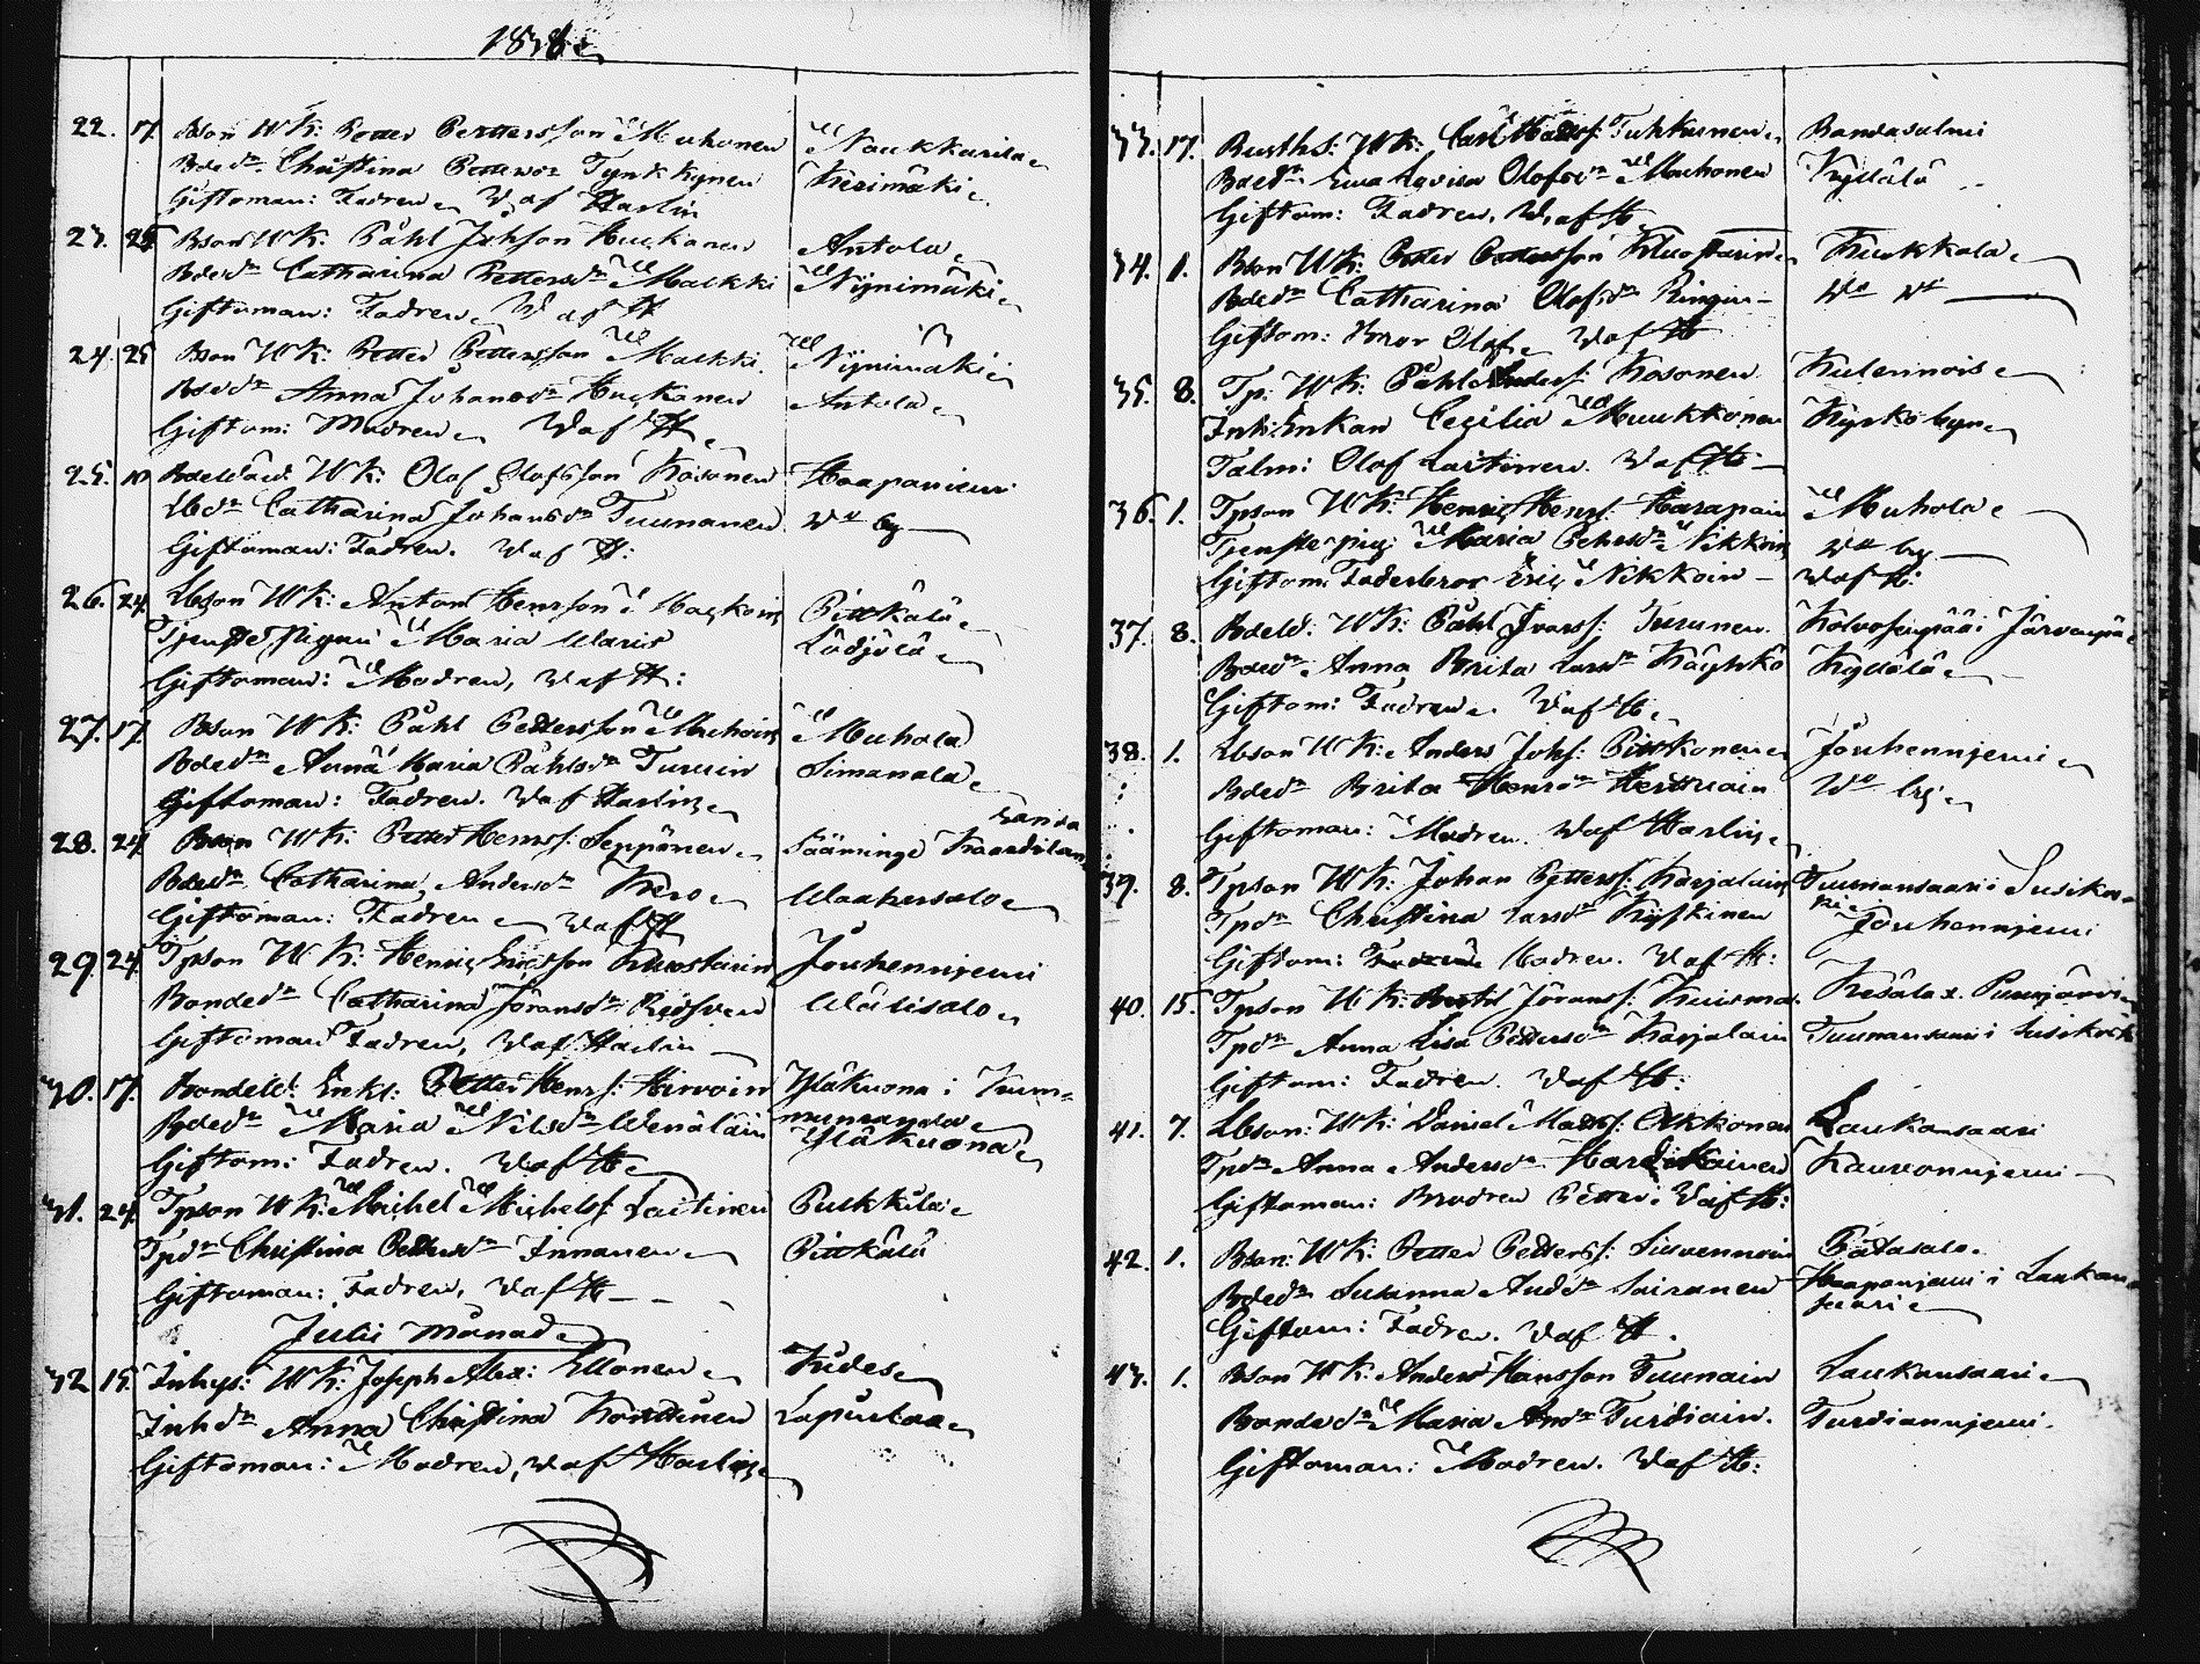 1838
22. 17. Bson W K: Petter Pettersson Muhonen Naukkarila
Bdedr Christina Pettersdr Tynkkynen Kerimäki
Giftoman: Fadren W. af Harlin
23. 25 Bson W K: Påhl Johsson Huckanen Antola
Bdedr Catharina Pettersdr Malkki Nynimäki
Giftoman: Fadren W af H
24. 25 Bson W K: Petter Pettersson Malkki Nynimäki
Bdedr Anna Johansdr Huckanen Antola
Giftom: Modren W af H
25. 10 W K: Olof Olofsson Kosonen Haapaniemi
Lbdr Catharina Johansdr Tuunanen Do by
Giftoman: Fadren. W af H:
26. 24. Lbson W K: Anton Henrsson Pitkälä
Tjenste Pigan Maria Waris
Giftoman: Modren, W af H:
27. 17. Bson W K: Påhl Pettersson Muhoin Muhola
Bdedr Anna Maria Påhlsdr Turuin Simanala
Giftoman: Fadren. W af Harlin
28. 24 Bson W K: Petter Henrss: Seppänen Sääminge
Bdedr Catharina Andersdr Kero Waahersalo
Giftoman: Fadren W af H
29. 24. Tpson W K: Henric Ericsson Kuostarin Jouhenniemi
Bondedr Catharina Jöransdr Wälisalo
Giftoman Fadren, W af Harlin
30. 17. Bondeld: Enkl: Petter Henrs: Hirvoin Yläkuona i
Bdedr Maria Nilsdr Wenäläin
Yläkuona
Giftom: Fadren. W af H
31. 24. Tpson W K: Michel Michelss: Laitinen Pulkkila
Tpdr Christina Pettersdr Innanen Pitkälä
Giftoman: Fadren, W af H
Julii månad
32 15. Inhys: W K: Joseph Alex: Ellonen Kides
Inhdr Anna Christina Konttinen
Giftoman: Modren, W af Harlin
33. 17. W K: Carl Matss: Tuhkunen Randasalmi
Bdedr Ewa Lovisa Olofsdr Muhonen Kydälä
Giftom: Fadren, W af H
34. 1. Bson W K: Petter Pettersson Kuostarin Kuokkala
Bdedr Catharina Olofsdr Ringin Do Do
Giftom: Bror Olof W af H
35. 8. Tp: W K: Påhl Anderss: Kosonen Kulennois
Inh: Enkan Cecilia Muukkonen Kyrkobyn
Talm: Olof Laitinen. W af H
36. 1. Tpson W K: Henric Henrs: Harapain Muhola
Tjenste pig: Maria Pehrsdr Nikkoin Do by
Giftom: Faderbror Eric Nikkoin W af H:
37. 8. Bdeld: W K: Påhl Ivarss: Turunen Kolvosenpää i Järvenpä
Bdedr Anna Brita Larsdr Käyhkö Kydälä
Giftom: Fadren. W af H
38. 1. Lbson W K: Anders Johs: Pitkonen Jouhenniemi
Bdedr Brita Henrsdr Do by
Giftoman: Modren. W af Harlin
39. 8. Tpson W K: Johan Petterss: Karjalain Tuunansaari i
Tpdr Christina Larsdr Jouhenniemi
Giftom: Modren. W af H:
40. 15. Tpson W K: Jöranss: Kuisma Kesälax
Tpdr Anna Lisa Pettersdr Karjalain Tuunansaari i
Giftom: Fadren. W af H:
41. 7. Lbson: W K: Daniel Matss: Okkonen Laukansaari
Tpdr Anna Andersdr Hardikainen
Giftoman: Brodren Petter. W af H:
42. 1. Bson: W K: Petter Petterss: Sirvennoin Patasalo
Bdedr Susanna Andsdr Sairanen Haapaniemi i Laukan
saari
Giftom: Fadren. W af H.
43. 1. Bson W K: Anders Hansson Tuunain Laukansaari
Bondedr Maria Andr Turdiain. Turdianniemi.
Giftoman: Modren. W af H: